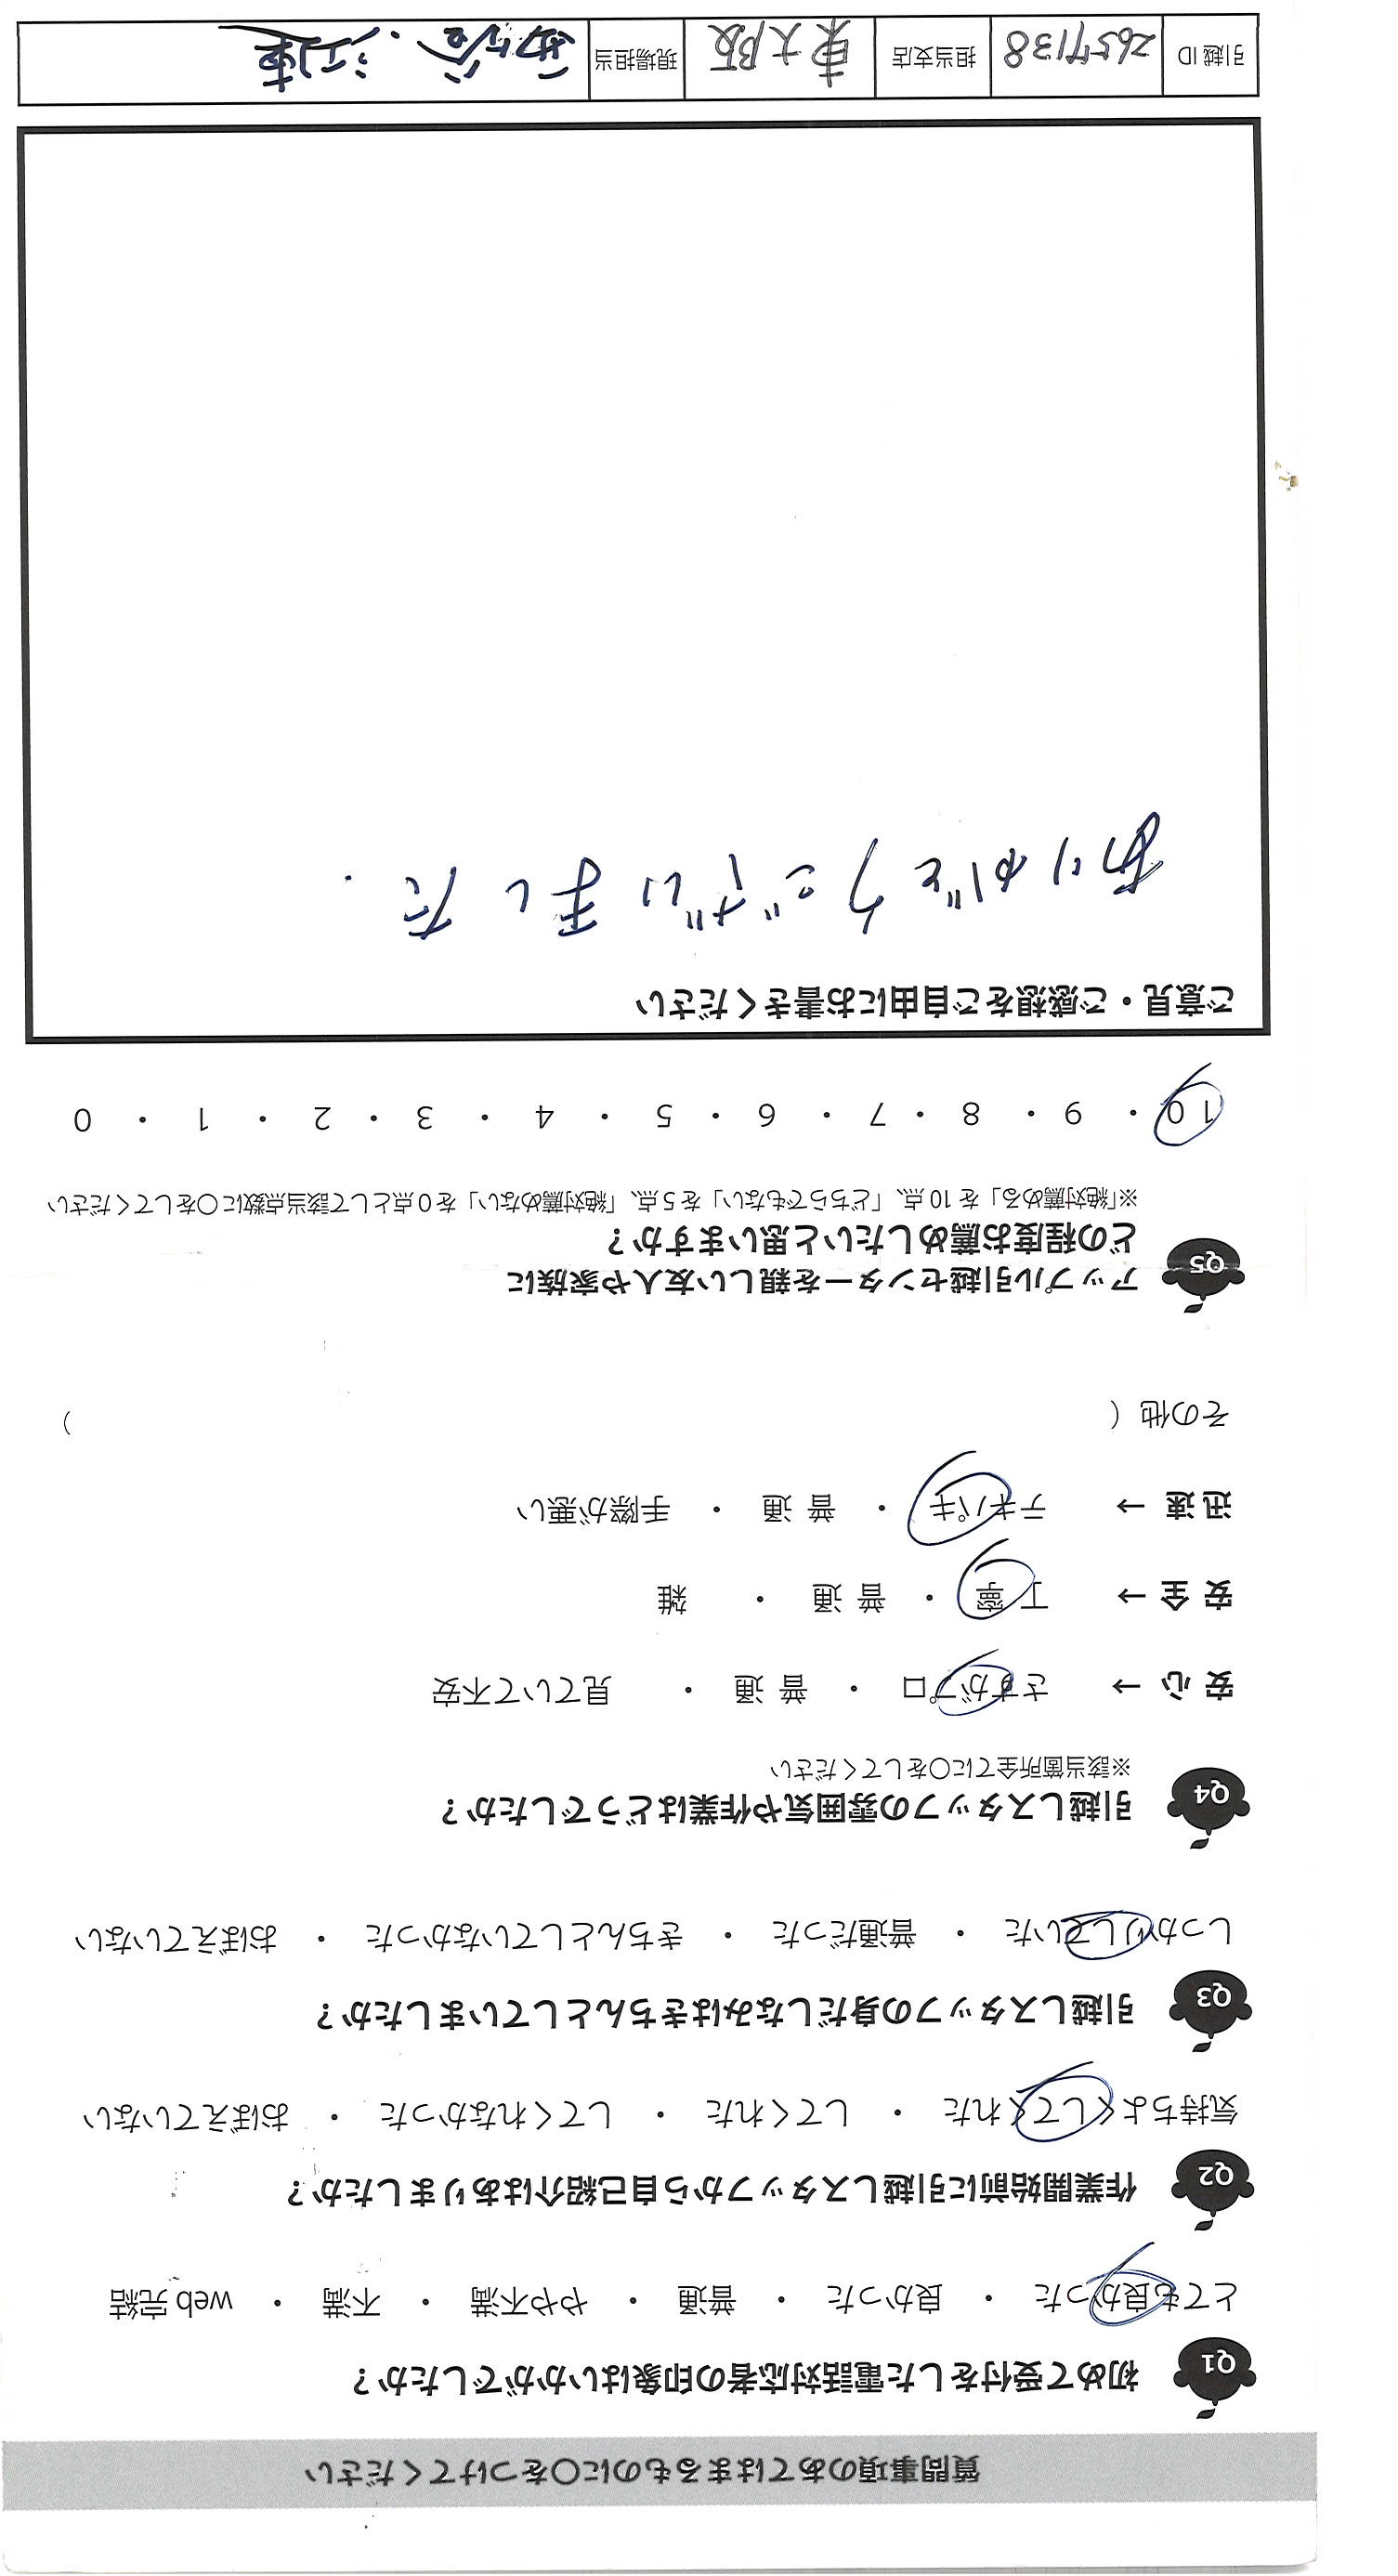 質問事項のあてはまるものに○をつけてください
Q1 初めて受付をした電話対応者の印象はいかがでしたか？
とても良かった ・ 良かった ・ 普通 ・ やや不満 ・ 不満 ・ web 完結
Q2 作業開始前に引越しスタッフから自己紹介はありましたか？
気持ちよくしてくれた ・ してくれた ・ してくれなかった ・ おぼえていない
Q3 引越しスタッフの身だしなみはきちんとしていましたか？
しっかりしていた ・ 普通だった ・ きちんとしていなかった ・ おぼえていない
Q4 引越しスタッフの雰囲気や作業はどうでしたか？
※該当箇所全てに○をしてください
安 心 → さすがプロ ・ 普 通 ・ 見ていて不安
安 全 → 丁 寧 ・ 普 通 ・ 雑
迅 速 → テキパキ ・ 普 通 ・ 手際が悪い
その他（ ）
Q5 アップル引越センターを親しい友人や家族に
どの程度お薦めしたいと思いますか？
※「絶対薦める」を 10 点、「どちらでもない」を 5 点、「絶対薦めない」を 0 点として該当点数に○をしてください
10 ・ 9 ・ 8 ・ 7 ・ 6 ・ 5 ・ 4 ・ 3 ・ 2 ・ 1 ・ 0
ご意見・ご感想をご自由にお書きください
ありがとうございました.
引越 ID 2657138 担当支店 東大阪 現場担当